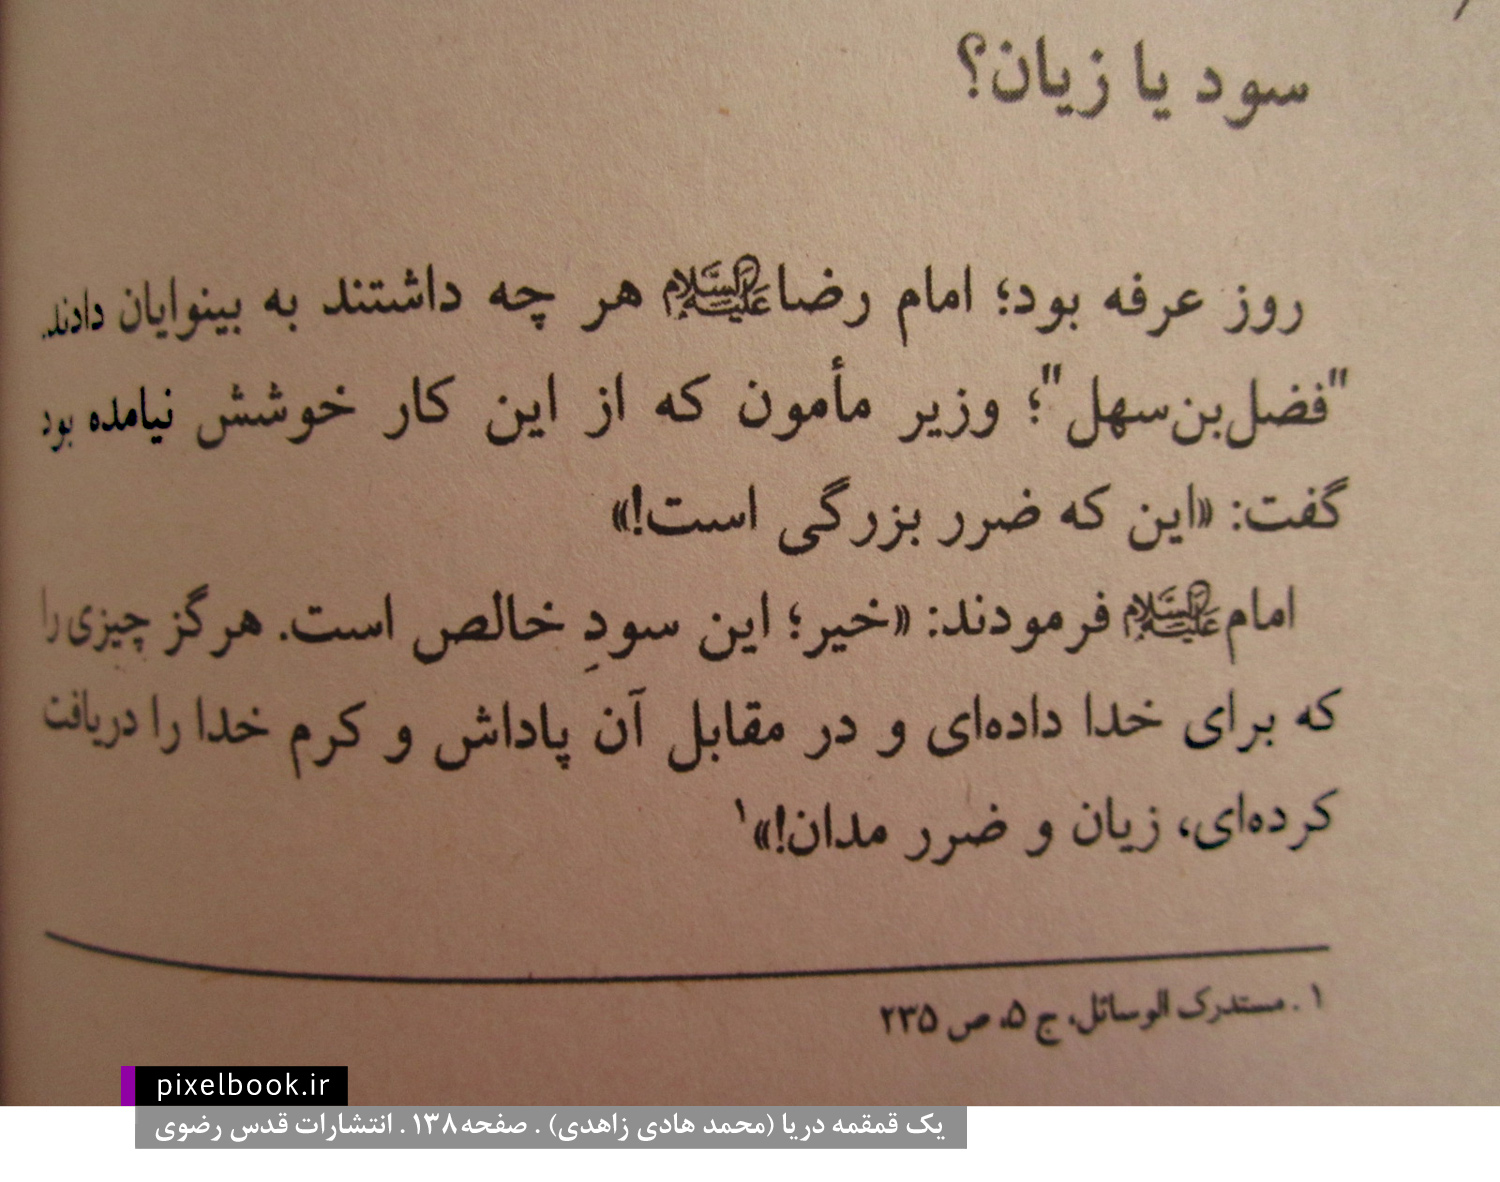 سود یا زیان؟
روز عرفه بود؛ امام رضا علیه‌السلام هر چه داشتند به بینوایان دادند.
"فضل‌بن‌سهل"؛ وزیر مأمون که از این کار خوشش نیامده بود
گفت: «این که ضرر بزرگی است!»
امام علیه‌السلام فرمودند: «خیر؛ این سودِ خالص است. هرگز چیزی را
که برای خدا داده‌ای و در مقابل آن پاداش و کرم خدا را دریافت
کرده‌ای، زیان و ضرر مدان!»۱
۱ . مستدرک الوسائل، ج ۵، ص ۲۳۵
pixelbook.ir
یک قمقمه دریا (محمد هادی زاهدی) . صفحه۱۳۸ . انتشارات قدس رضوی